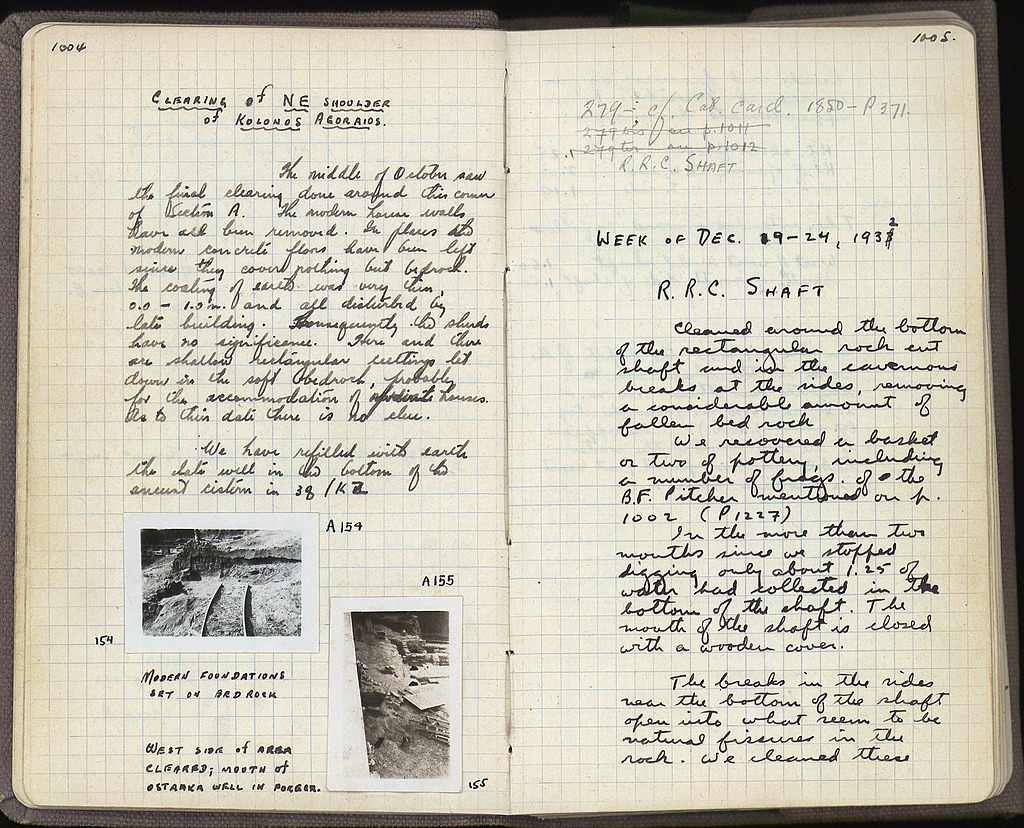 1004
CLEARING of NE SHOULDER
of KOLONOS AGORAIOS.
The middle of October saw
the final clearing done around this corner
of Section A. The modern house walls
have all been removed. In places the
modern concrete floors have been left
since they cover nothing but bedrock.
The coating of earth was very thin,
0.0 - 1.0 m. and all disturbed by
late building. Consequently the sherds
have no significance. Here and there
are shallow rectangular cuttings let
down in the soft bedrock, probably
for the accommodation of houses.
As to this date there is no clue.
We have refilled with earth
the late well in the bottom of the
ancient cistern in 38/K
A 154
A 155
154
MODERN FOUNDATIONS
SET ON BEDROCK
WEST SIDE of AREA
CLEARED; MOUTH of
OSTRAKA WELL IN FOREGR.
155
1005.
279 - cf. Cat. card. 1850 - P 371.
279 bis on p. 1011
279 ter on p. 1012
R.R.C. SHAFT
WEEK OF DEC. 19-24, 1932
R. R. C. SHAFT
Cleaned around the bottom
of the rectangular rock cut
shaft and in the cavernous
breaks at the sides, removing
a considerable amount of
fallen bed rock
We recovered a basket
or two of pottery, including
a number of frags. of the
B.F. Pitcher mentioned on p.
1002 (P1227)
In the more than two
months since we stopped
digging only about 1.25 of
water had collected in the
bottom of the shaft. The
mouth of the shaft is closed
with a wooden cover.
The breaks in the sides
near the bottom of the shaft
open into what seem to be
natural fissures in the
rock. We cleaned these